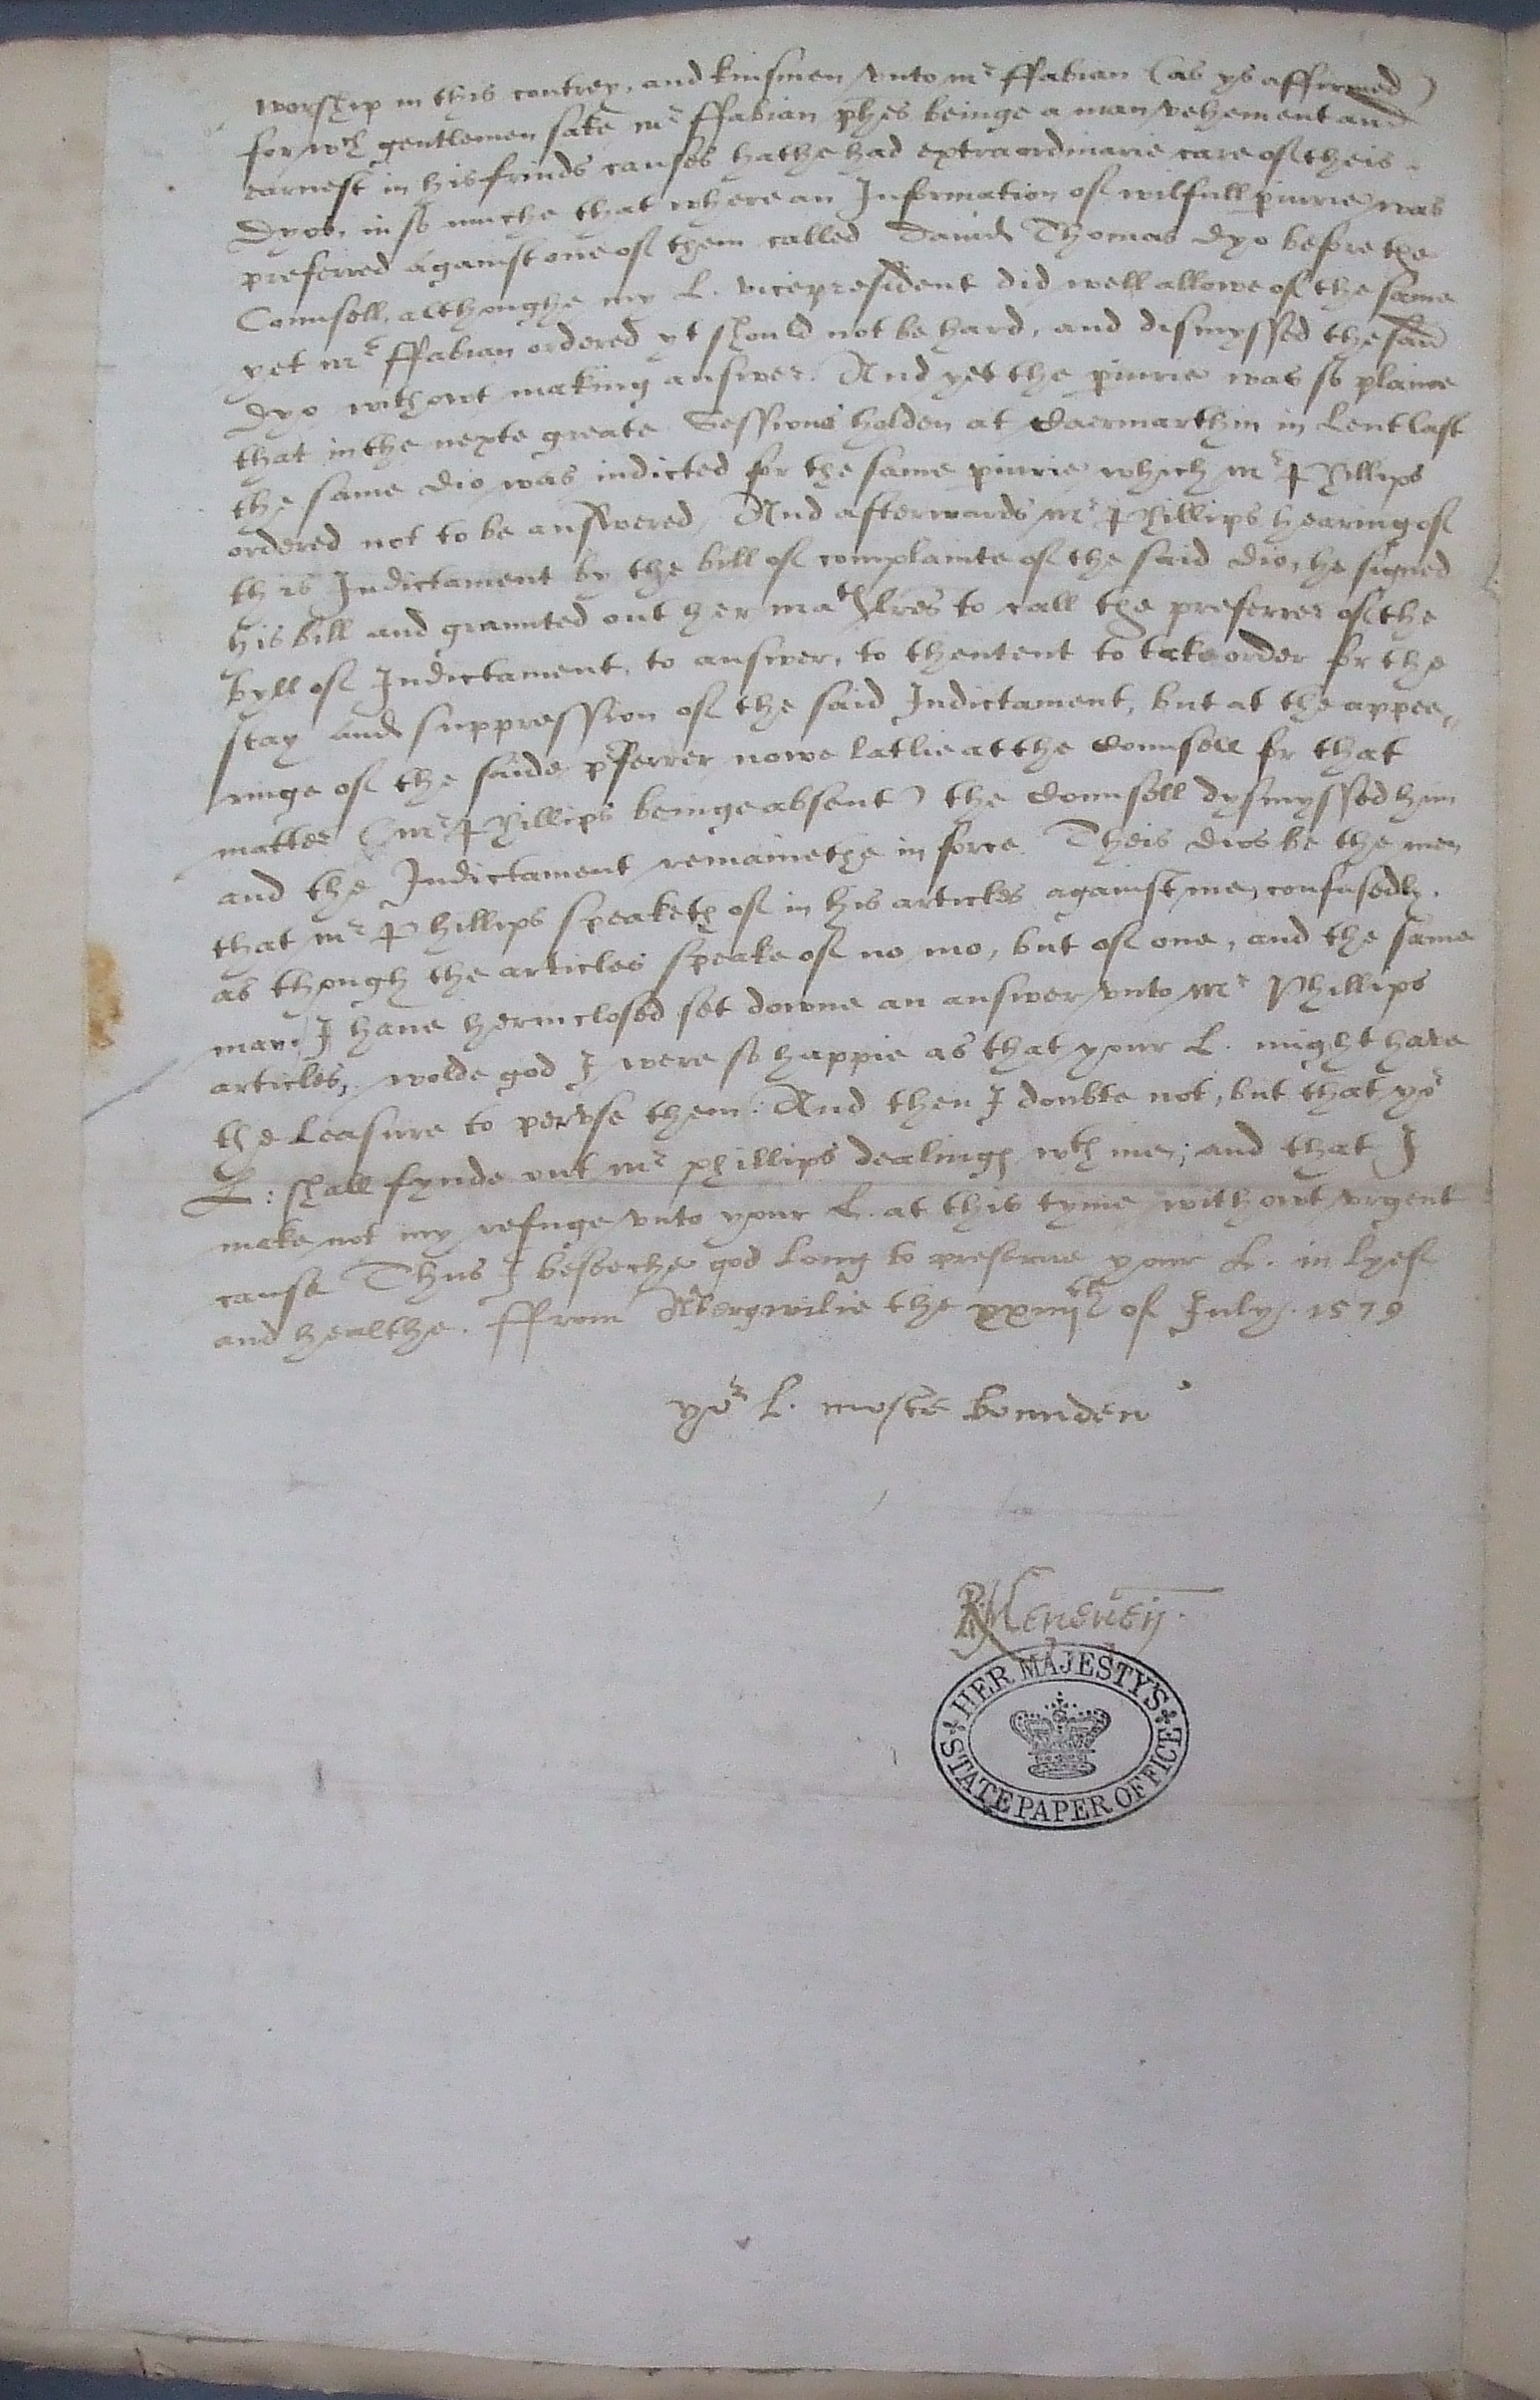 worship in this contrey, and kinsmen vnto mr ffabian (as ys affirmed)
for wch gentlemen sake mr ffabian phes beinge a man vehement and
earnest in his frinds causes hathe had extraordinarie care of theis
Dyos, in so muche that where an Information of wilfull piurie was
preferred against one of them called Dauid Thomas dyo before the
Counsell, althoughe my L. vicepresident did well allowe of the same
yet mr ffabian ordered yt should not be hard, and dismyssed the said
Dyo without making answer. And yet the piurie was so plaine
that in the nexte greate Sessions holden at Caermarthin in Lent last
the same dio was indicted for the same piurie which mr Phillips
ordered not to be answered, And afterwards mr Phillips hearing of
this Indictament by the bill of complainte of the said dio, he signed
his bill and graunted out her matis lres to call the preferrer of the
byll of Indictament, to answer, to thentent to take order for the
stay and suppression of the said Indictament, but at the appea„
ringe of the saide pferrer nowe latlie at the Counsell for that
matter (mr Phillips beinge absent) the Counsell dysmyssed him
and the Indictament remainethe in force. Theis dios be the men
that mr Phillips speaketh of in his articles against me, confusedly.
as though the articles speake of no mo, but of one, and the same
man. I haue herinclosed set downe an answer vnto mr Phillips
articles, wolde god I were so happie as that your L. might have
the leasure to pervse them: And then I doubte not, but that yor
L: shall fynde out mr phillips dealings wth me; and that I
make not my refuge vnto your L. at this tyme without vrgent
cause Thus I beseeche god long to preserue your L. in lyef
and healthe. ffrom Abergwilie the xxiiijth of July. 1579
yor L. moste bounden
R: Meneueñ.
HER MAJESTY'S STATE PAPER OFFICE